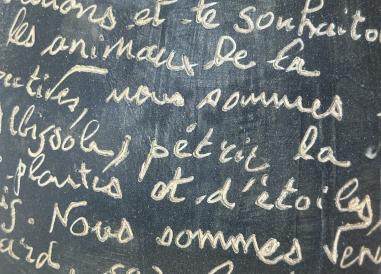 et te souhaito
les animaux De la
ectives, nous sommes
(bissole) pétrir la
plantes et d'étoiles,
is. Nous sommes ven
ard